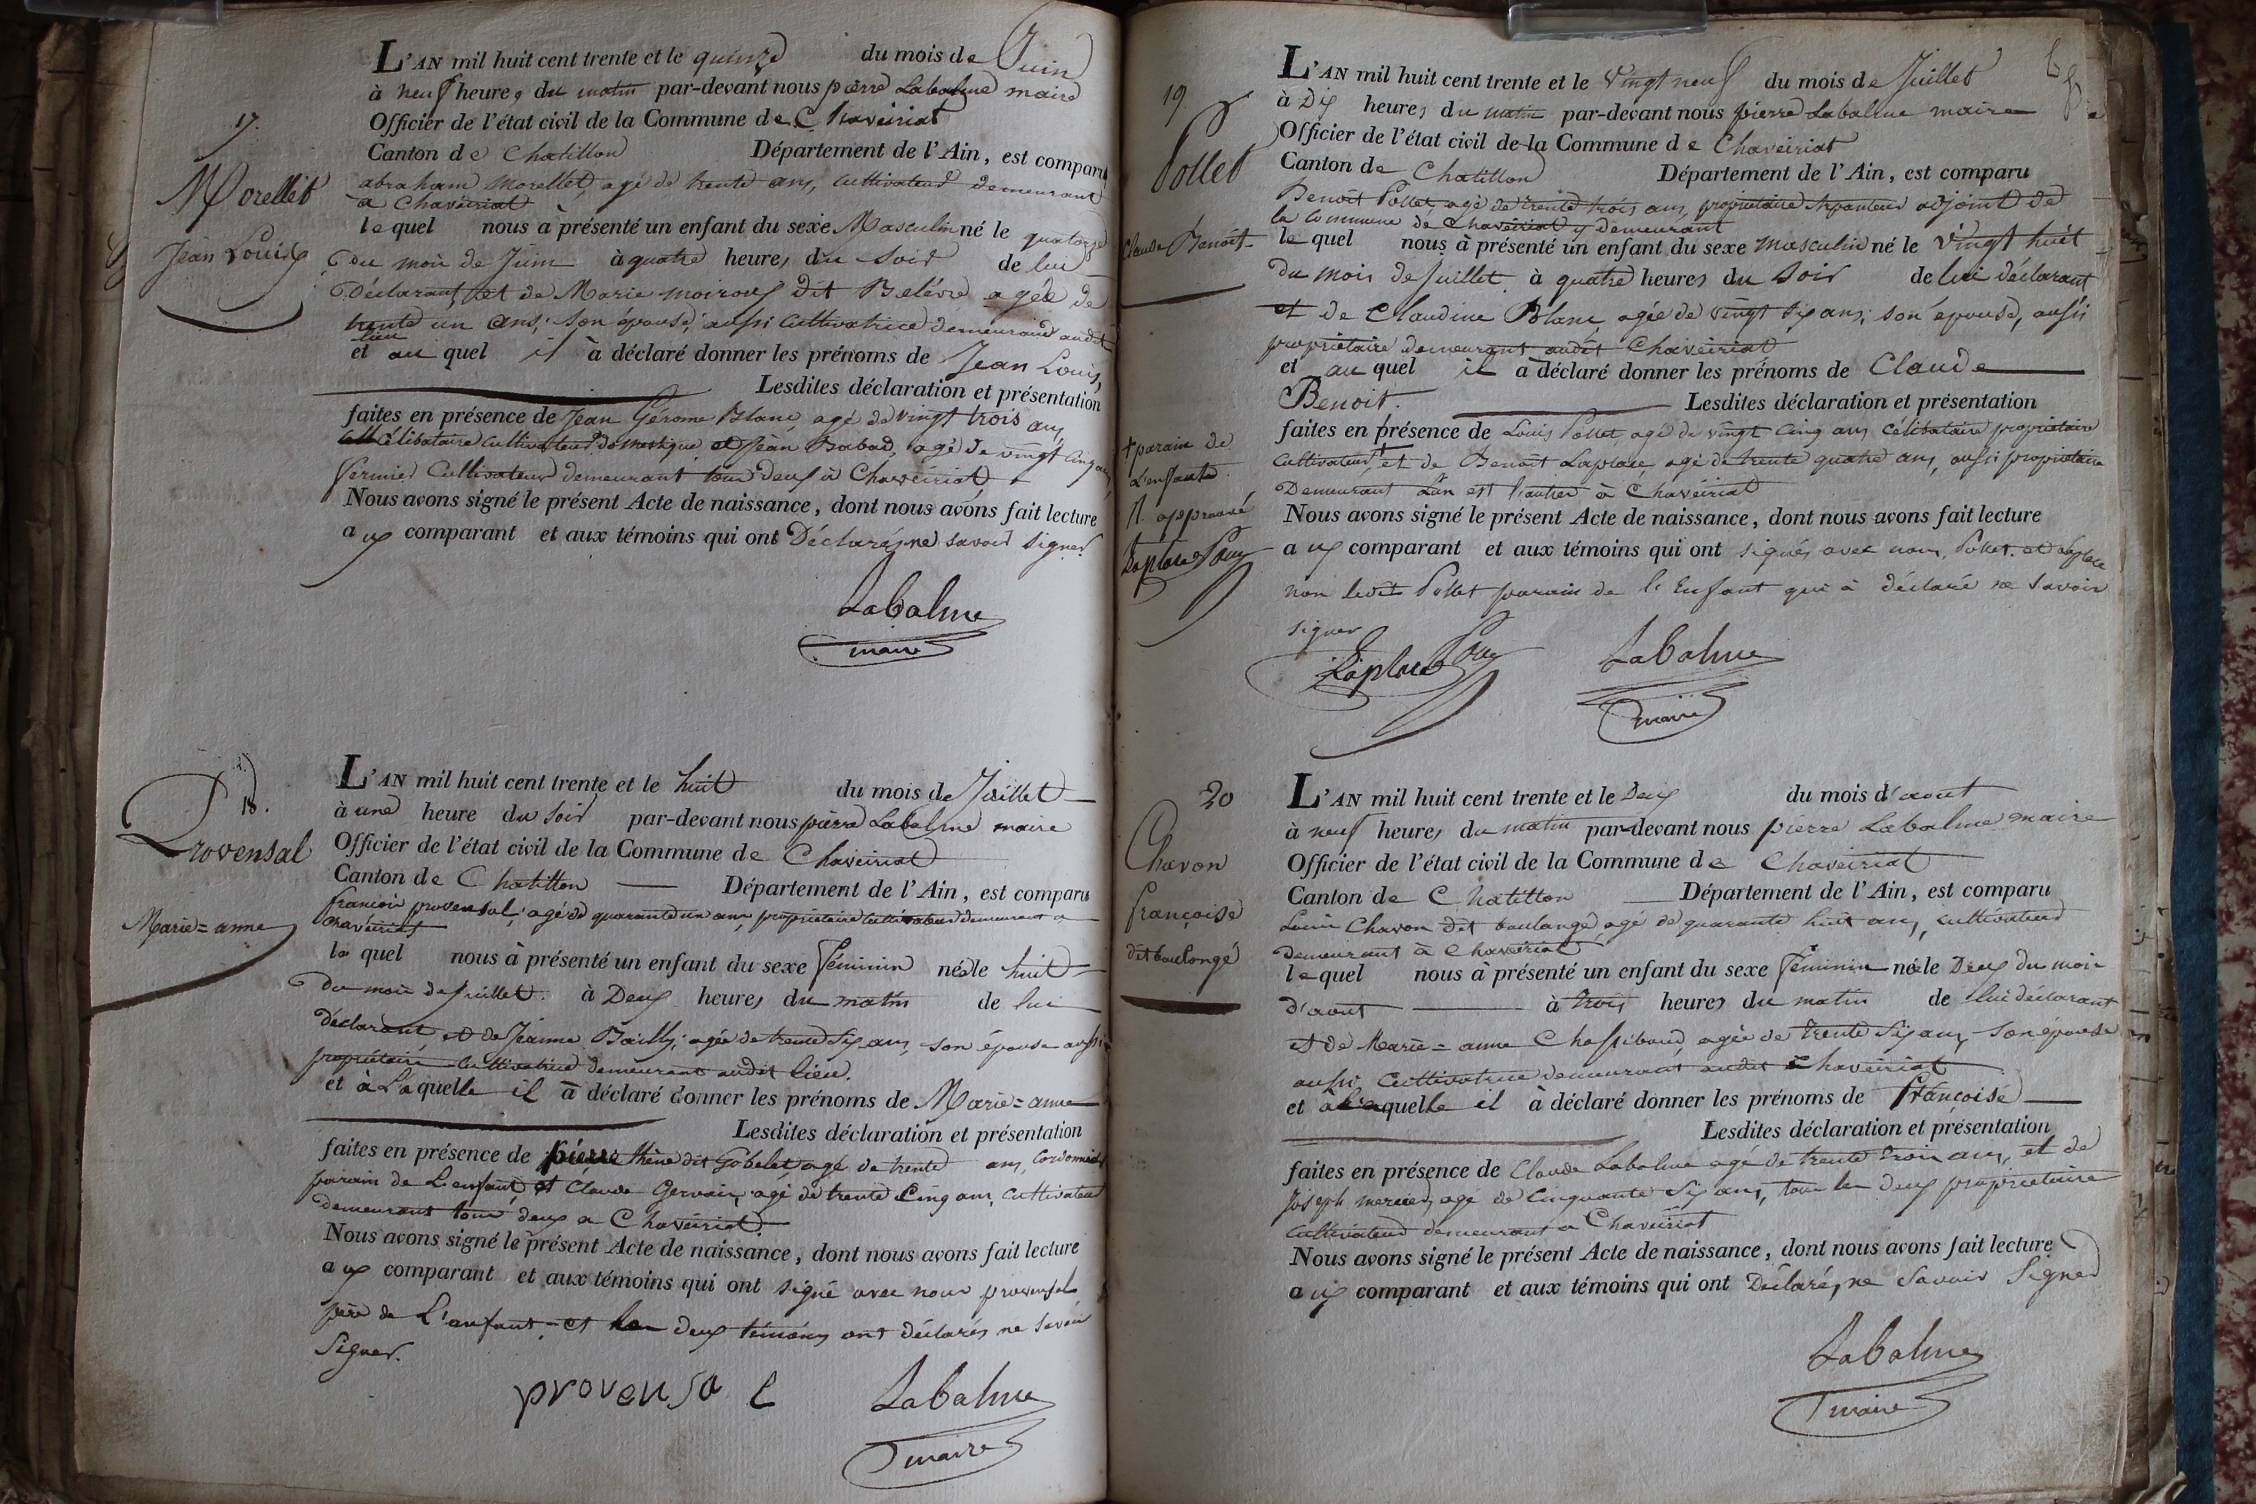 17.
Morellet
Jean Louis
L'AN mil huit cent trente et le quinze du mois de Juin
à neuf heures du matin par-devant nous pierre Labalme maire
Officier de l'état civil de la Commune de Chaveiriat
Canton de Chatillon Département de l'Ain, est comparu
abraham Morellet, agé de trente ans, cultivateur demeurant
à Chaveiriat
lequel nous à présenté un enfant du sexe Masculin né le quatorze
du mois de Juin à quatre heures du soir de lui
Déclarant, et de Marie moiroux dit Belévre agée de
trente un ans, son épouse, aussi cultivatrice demeurant audit
lieu
et au quel il à déclaré donner les prénoms de Jean Louis,
Lesdites déclaration et présentation
faites en présence de Jean Gérome Blanc agé de vingt trois ans
célibataire cultivateur domestique et Jean Babad, agé de vingt cinq ans,
fermier Cultivateur demeurant tous deux à Chaveiriat
Nous avons signé le présent Acte de naissance, dont nous avons fait lecture
aux comparant et aux témoins qui ont Déclarés ne savoir signer.
Labalme
maire
18.
Provensal
Marie=anne
L'AN mil huit cent trente et le huit du mois de Juillet
à une heure du soir par-devant nous pierre Labalme maire
Officier de l'état civil de la Commune de Chaveiriat
Canton de Chatillon Département de l'Ain, est comparu
francois provensal, agé de quarante un ans, propriétaire cultivateur demeurant a
chavéiriat
le quel nous à présenté un enfant du sexe féminin née le huit
du mois de Juillet. à Deux heures du matin de lui
déclarant, et de Jeanne Bailly, agée de trente six ans, son épouse aussi
propriétaire cultivatrice demeurant audit lieu.
et à Laquelle il à déclaré donner les prénoms de Marie=anne
Lesdites déclaration et présentation
faites en présence de pierre thène dit Gobelet agé de trente ans, cordonnier
parain de L'enfant et Claude Gervais, agé de trente Cinq ans, cultivateur
demeurant tous deux a Chaveiriat.
Nous avons signé le présent Acte de naissance, dont nous avons fait lecture
aux comparant et aux témoins qui ont signé avec nous provensal
père de L'enfant, et les deux témoins ont déclarés ne savoir
Signer.
provensal
Labalme
maire
19
Pollet
Claude Benoit
L'AN mil huit cent trente et le Vingt neuf du mois de Juillet
à Dix heures du matin par-devant nous pierre Labalme maire
Officier de l'état civil de la Commune de Chaveiriat
Canton de Chatillon Département de l'Ain, est comparu
Benoit Pollet agé de trente trois ans, propriétaire arpenteur adjoint de
la Commune de Chaveiriat y demeurant
le quel nous à présenté un enfant du sexe masculin né le Vingt huit
du mois de Juillet à quatre heures du soir de lui déclarant
et de Claudine Blanc, agée de vingt six ans, son épouse, aussi
propriétaire demeurant audit Chaveiriat
et au quel il à déclaré donner les prénoms de Claude
Benoit.
Lesdites déclaration et présentation
faites en présence de Louis Pollet, agé de vingt cinq ans célibataire propriétaire
cultivateur + et de Benoit Laplace agé de trente quatre ans, aussi propriétaire
Demeurant L'un est l'autre à Chaveiriat
Nous avons signé le présent Acte de naissance, dont nous avons fait lecture
aux comparant et aux témoins qui ont signés avec nous, Pollet et Laplace
non ledit Pollet parain de l'Enfant qui à déclaré ne savoir
signer
+ parain de
L'enfant
approuvé
Laplace
Laplace
Labalme
maire
20
Chavon
françoise
dit boulonge
L'AN mil huit cent trente et le Deux du mois d'aout
à neuf heures du matin par-devant nous pierre Labalme maire
Officier de l'état civil de la Commune de Chaveiriat
Canton de Chatillon Département de l'Ain, est comparu
Louis Chavon dit boulange, agé de quarante huit ans, cultivateur
demeurant à Chaveiriat
lequel nous à présenté un enfant du sexe féminin née le Deux du mois
d'aout à trois heures du matin de lui déclarant
et de Marie=anne Chassibout, agée de trente six ans, son épouse
aussi cultivatrice demeurant audit Chaveiriat
et à laquelle il à déclaré donner les prénoms de françoise
Lesdites déclaration et présentation
faites en présence de Claude Labalme agé de trente trois ans, et de
Joseph mercier, agé de cinquante six ans, tous les deux propriétaire
cultivateur demeurant a Chaveiriat
Nous avons signé le présent Acte de naissance, dont nous avons fait lecture
aux comparant et aux témoins qui ont Déclarés ne savoir signer
Labalme
maire